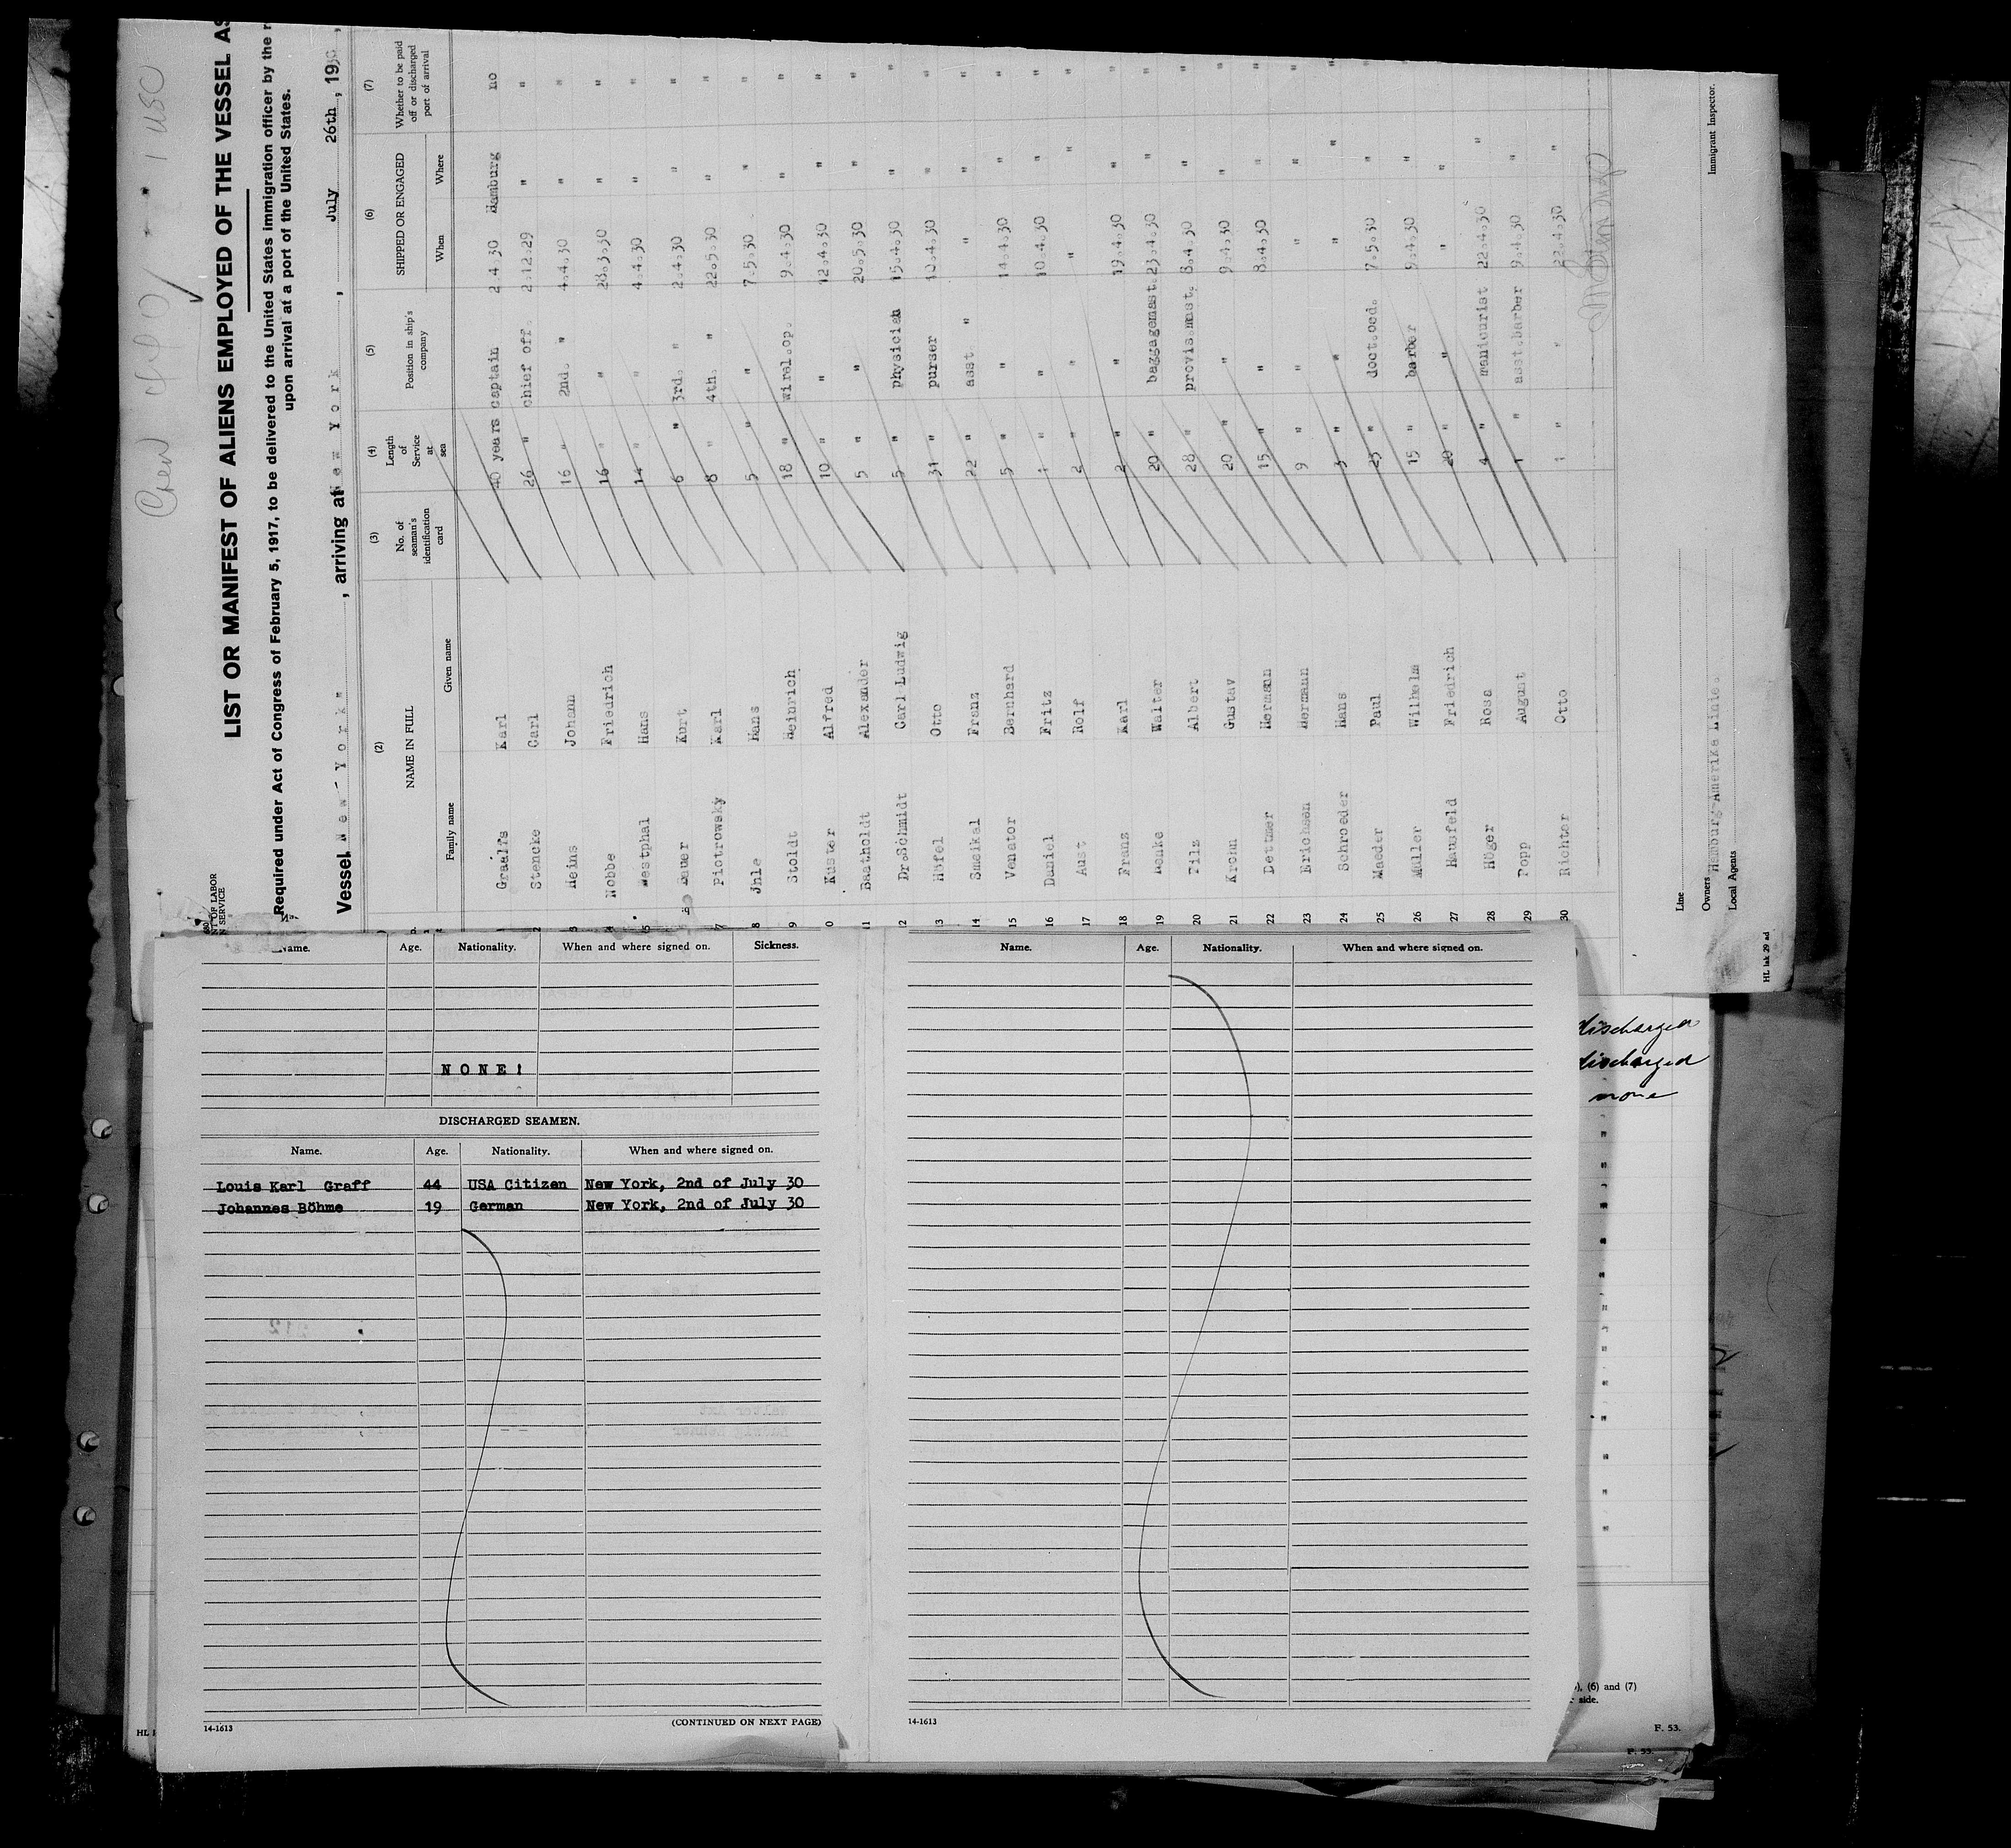 LIST OR MANIFEST OF ALIENS EMPLOYED OF THE VESSEL AS
Required under Act of Congress of February 5, 1917, to be delivered to the United States immigration officer by the
upon arrival at a port of the United States.
Vessel "New York", arriving at New York, July 26th, 1930,
T OF LABOR
N SERVICE
(2) (3) (4) (5) (6) (7)
NAME IN FULL No. of seaman's identification card Length of Service at sea Position in ship's company SHIPPED OR ENGAGED Whether to be paid off or discharged port of arrival
Family name Given name When Where
1 Graalfs Karl 40 years captain 2.4.30 Hamburg no
2 Stencke Carl 26 " chief off. 2.12.29 " "
3 Heins Johann 16 " 2nd. " 4.4.30 " "
4 Nobbe Friedrich 16 " " 28.3.30 " "
5 Westphal Hans 14 " " 4.4.30 " "
Bauer Kurt 6 " 3rd. " 2.4.30 " "
7 Piotrowsky Karl 8 " 4th. " 22.5.30 " "
8 Jhle Hans 5 " " 7.5.30 " "
9 Stoldt Heinrich 18 " wirel.op. 9.4.30 " "
0 Küster Alfred 10 " " 12.4.30 " "
11 Bastholdt Alexander 5 " " 20.5.30 " "
12 Dr.Schmidt Carl Ludwig 5 " physician 15.4.30 " "
13 Häfel Otto 31 " purser 10.4.30 " "
14 Smeikal Franz 22 " asst " " " "
15 Venator Bernhard 5 " " 14.4.30 " "
16 Daniel Fritz 1 " " 10.4.30 " "
17 Aust Rolf 2 " " " " "
18 Franz Karl 2 " " 19.4.30 " "
19 Henke Walter 20 " baggagemast. 23.4.30 " "
20 Pilz Albert 28 " provis.mast. 8.4.30 " "
21 Krohn Gustav 20 " " 9.4.30 " "
22 Dettmer Hermann 15 " " 8.4.30 " "
23 Erichsen Hermann 9 " " " " "
24 Schroeder Hans 3 " " " " "
25 Maeder Paul 23 " doct.ocd. 7.5.30 " "
26 Müller Wilhelm 15 " barber 9.4.30 " "
27 Haupfeld Friedrich 20 " " " "
28 Höger Rosa 4 " manicurist 22.4.30 "
29 Popp August 1 " asst.barber 9.4.30 "
30 Richter Otto 1 " " 22.4.30 "
Line
Owners Hamburg-Amerika Linie.
Local Agents
Immigrant Inspector.
HL lak 29 ad
Name. Age. Nationality. When and where signed on. Sickness.
NONE!
DISCHARGED SEAMEN.
Name. Age. Nationality. When and where signed on.
Louis Karl Graff 44 USA Citizen New York, 2nd of July 30
Johannes Böhme 19 German New York, 2nd of July 30
14-1613 (CONTINUED ON NEXT PAGE)
Name. Age. Nationality. When and where signed on.
14-1613
discharged
discharged
none
"
"
"
"
"
"
"
"
"
"
"
"
), (6) and (7)
side.
F. 53.
F. 53.
HL